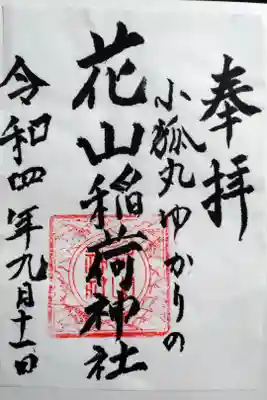 奉拝
小狐丸ゆかりの
花山稲荷神社
令和四年九月十一日